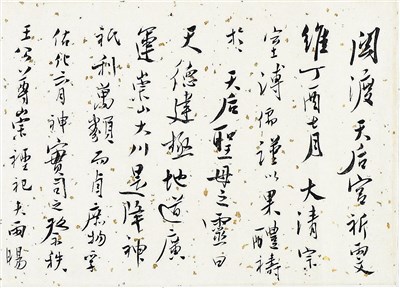 闽渡天后宫祈雯
維丁酉七月大清宗
室溥儒謹以果醴禱
於天后聖母之靈曰
天德建極地道廣
運崇山大川是降神
祇利萬類而貞庶物
神實司之秩
王公尊崇禋祀夫雨暘